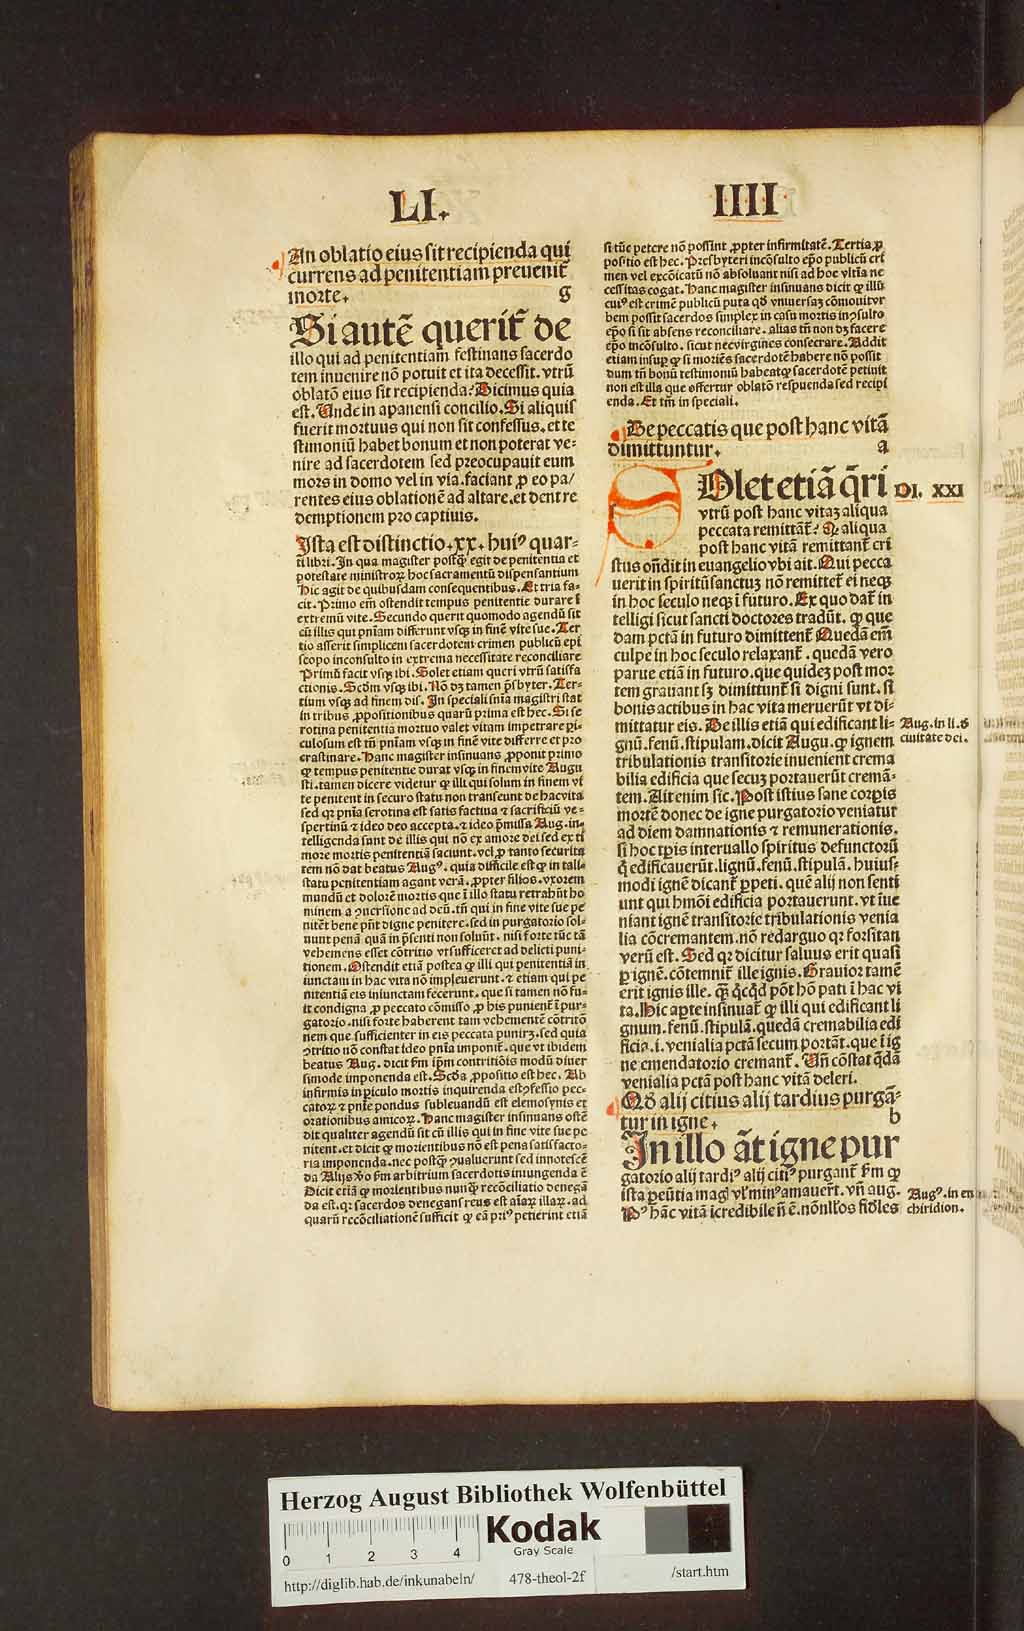 LI.
IIII
An oblatio eius sit recipienda qui
currens ad penitentiam preuenit᷑
morte.
g
Si autē querit᷑ de
illo qui ad penitentiam festinans sacerdo
tem inuenire nō potuit et ita decessit. vtrū
oblatō eius sit recipienda? Dicimus quia
est. Unde in apanensi concilio. Si aliquis
fuerit mortuus qui non sit confessus. et te
stimoniū habet bonum et non poterat ve⸗
nire ad sacerdotem sed preocupauit eum
mors in domo vel in via. faciant ꝓ eo pa/
rentes eius oblationē ad altare. et dent re
demptionem pro captiuis.
Ista est distinctio .xx. huiꝰ quar⸗
ti libri. In qua magister postꝙ̄ egit de penitentia et
potestate ministroꝝ hoc sacramentū dispensantium
hic agit de quibusdam consequentibus. Et tria fa⸗
cit. Primo em̄ ostendit tempus penitentie durare ī
extremū vite. Secundo querit quomodo agendū sit
cū illis qui pn̄iam differunt vsqꝫ in finē vite sue. Ter
tio asserit simplicem sacerdotem crimen publicū epi
scopo inconsulto in extrema necessitate reconciliare
Primū facit vsqꝫ ibi. Solet etiam queri vtrū satisfa
ctionis. Scdm vsqꝫ ibi. Nō dꝫ tamen p̄sbyter. Ter⸗
tium vsqꝫ ad finem dis. In speciali sn̄ia magistri stat
in tribus ꝓpositionibus quarū prima est hec. Si se
rotina penitentia mortuo valet vitam impetrare ꝑi⸗
culosum est tn̄ pn̄iam vsqꝫ in finē vite differre et pro
crastinare. Hanc magister insinuans ꝓponit primo
ꝙ tempus penitentie durat vsqꝫ in finem vite Augu
sti. tamen dicere videtur ꝙ illi qui solum in finem vi
te penitent in securo statu non transeunt de hac vita
sed qꝛ pn̄ia serotina est satis factiua ⁊ sacrificiū ve⸗
spertinū ⁊ ideo deo accepta. ⁊ ideo p̄missa Aug. in⸗
telligenda sunt de illis qui nō ex amore dei sed ex ti
more mortis penitentiā faciunt. vel ꝓ tanto securita
tem nō dat beatus Augꝰ. quia difficile est ꝙ in tali
statu penitentiam agant verā. ꝓpter filios. vxorem
mundū et dolorē mortis que ī illo statu retrahūt ho
minem a ꝯuersione ad deū. tn̄ qui in fine vite sue pe
nitēt bene pn̄t digne penitere. sed in purgatorio sol⸗
uunt penā quā in p̄senti non soluūt. nisi forte tūc tā
vehemens esset cōtritio vt sufficeret ad delicti puni⸗
tionem. Ostendit etiā postea ꝙ illi qui penitentiā in
iunctam in hac vita nō impleuerunt. ⁊ etiam qui pe
nitentiā eis iniunctam fecerunt. que si tamen nō fu⸗
it condigna ꝓ peccato cōmisso ꝓ his punient᷑ ī pur⸗
gatorio. nisi forte haberent tam vehementē cōtritō
nem que sufficienter in eis peccata puniret. sed quia
ꝯtritio nō constat ideo pn̄ia imponit᷑. que vt ibidem
beatus Aug. dicit ẜm ip̄m contritiōis modū diuer
simode imponenda est. Scd̄a ꝓpositio est hec. Ab
infirmis in ꝑiculo mortis inquirenda est ꝯfessio pec⸗
catoꝝ ⁊ pn̄ie pondus subleuandū est elemosynis et
orationibus amicoꝝ. Hanc magister insinuans ostē
dit qualiter agendū sit cū illis qui in fine vite sue pe
nitent. et dicit ꝙ morientibus nō est pena satisfacto⸗
ria imponenda. nec postꝙ̄ ꝯualuerunt sed innotescē
da Alijs v̄o ẜm arbitrium sacerdotis iniungenda ē
Dicit etiā ꝙ morientibus nunꝙ̄ recōciliatio denegā
da est. qꝛ sacerdos denegans reus est aīaꝝ illaꝝ. ad
quarū recōciliationē sufficit ꝙ eā priꝰ petierint etiā
si tūc petere nō possint ꝓpter infirmitatē. Tertia ꝓ
positio est hec. Presbyteri incōsulto ep̄o publicū cri
men vel excōicatū nō absoluant nisi ad hoc vltīa ne
cessitas cogat. Hanc magister insinuans dicit ꝙ illū
cuiꝰ est crimē publicū puta qd̄ vniuersaꝫ cōmouit vr
bem possit sacerdos simplex in casu mortis inꝯsulto
ep̄o si sit absens reconciliare. alias tn̄ non dꝫ facere
ep̄o incōsulto. sicut nec virgines consecrare. Addit
etiam insuꝑ ꝙ si moriēs sacerdotē habere nō possit
dum tn̄ bonū testimoniū habeat ꝙ sacerdotē petiuit
non est illa que offertur oblatō respuenda sed recipi
enda. Et tm̄ in speciali.
De peccatis que post hanc vitā
dimittuntur.
a
Olet etiā q̄ri
DI. XXI
vtrū post hanc vitaꝫ aliqua
peccata remittāt᷑? Q̇ aliqua
post hanc vitā remittant᷑ cri
stus on̄dit in euangelio vbi ait. Qui pecca
uerit in spiritū sanctuꝫ nō remittet᷑ ei neqꝫ
in hoc seculo neqꝫ ī futuro. Ex quo dat᷑ in
telligi sicut sancti doctores tradūt. ꝙ que
dam pctā in futuro dimittent᷑ Quedā em̄
culpe in hoc seculo relaxant᷑. quedā vero
parue etiā in futuro. que quideꝫ post mor
tem grauant sꝫ dimittunt᷑ si digni sunt. si
bonis actibus in hac vita meruerūt vt di⸗
mittatur eis. De illis etiā qui edificant li⸗
gnū. fenū. stipulam. dicit Augu. ꝙ ignem
tribulationis transitorie inuenient crema
bilia edificia que secuꝫ portauerūt cremā⸗
tem. Ait enim sic. Post istius sane corꝑis
mortē donec de igne purgatorio veniatur
ad diem damnationis ⁊ remunerationis.
si hoc tꝑis interuallo spiritus defunctorū
q̇ edificauerūt. lignū. fenū. stipulā. huius⸗
modi ignē dicant᷑ ꝑpeti. quē alij non senti
unt qui hmōi edificia portauerunt. vt īue
niant ignē transitorie tribulationis venia
lia cōcremantem. nō redarguo qꝛ forsitan
verū est. Sed qꝛ dicitur saluus erit quasi
ꝑ ignē. cōtemnit᷑ ille ignis. Grauior tamē
erit ignis ille. ꝙ̄ q̇cq̇d pōt hō pati ī hac vi
ta. Hic aꝑte insinuat᷑ ꝙ illi qui edificant li
gnum. fenū. stipulā. quedā cremabilia edi
ficia .i. venialia pctā secum portāt. que ī ig
ne emendatorio cremant᷑. Vn̄ cōstat q̄dā
venialia pctā post hanc vitā deleri.
Qd̄ alij citius alij tardius purgā⸗
tur in igne.
b
In illo āt igne pur
gatorio alij tardiꝰ alij citiꝰ purgant᷑ ẜm ꝙ
ista ꝑeūtia magꝭ vl̓ minꝰ amauer̄t. vn̄ aug.
Pꝰ hāc vitā īcredibile n̄ ē. nōnll̓os fid̓les
Aug. in li. d̓
ciuitate dei.
Augꝰ. in en
chiridion.
Herzog August Bibliothek Wolfenbüttel
Kodak
Gray Scale
0 1 2 3 4
http://diglib.hab.de/inkunabeln/
478-theol-2f
/start.htm